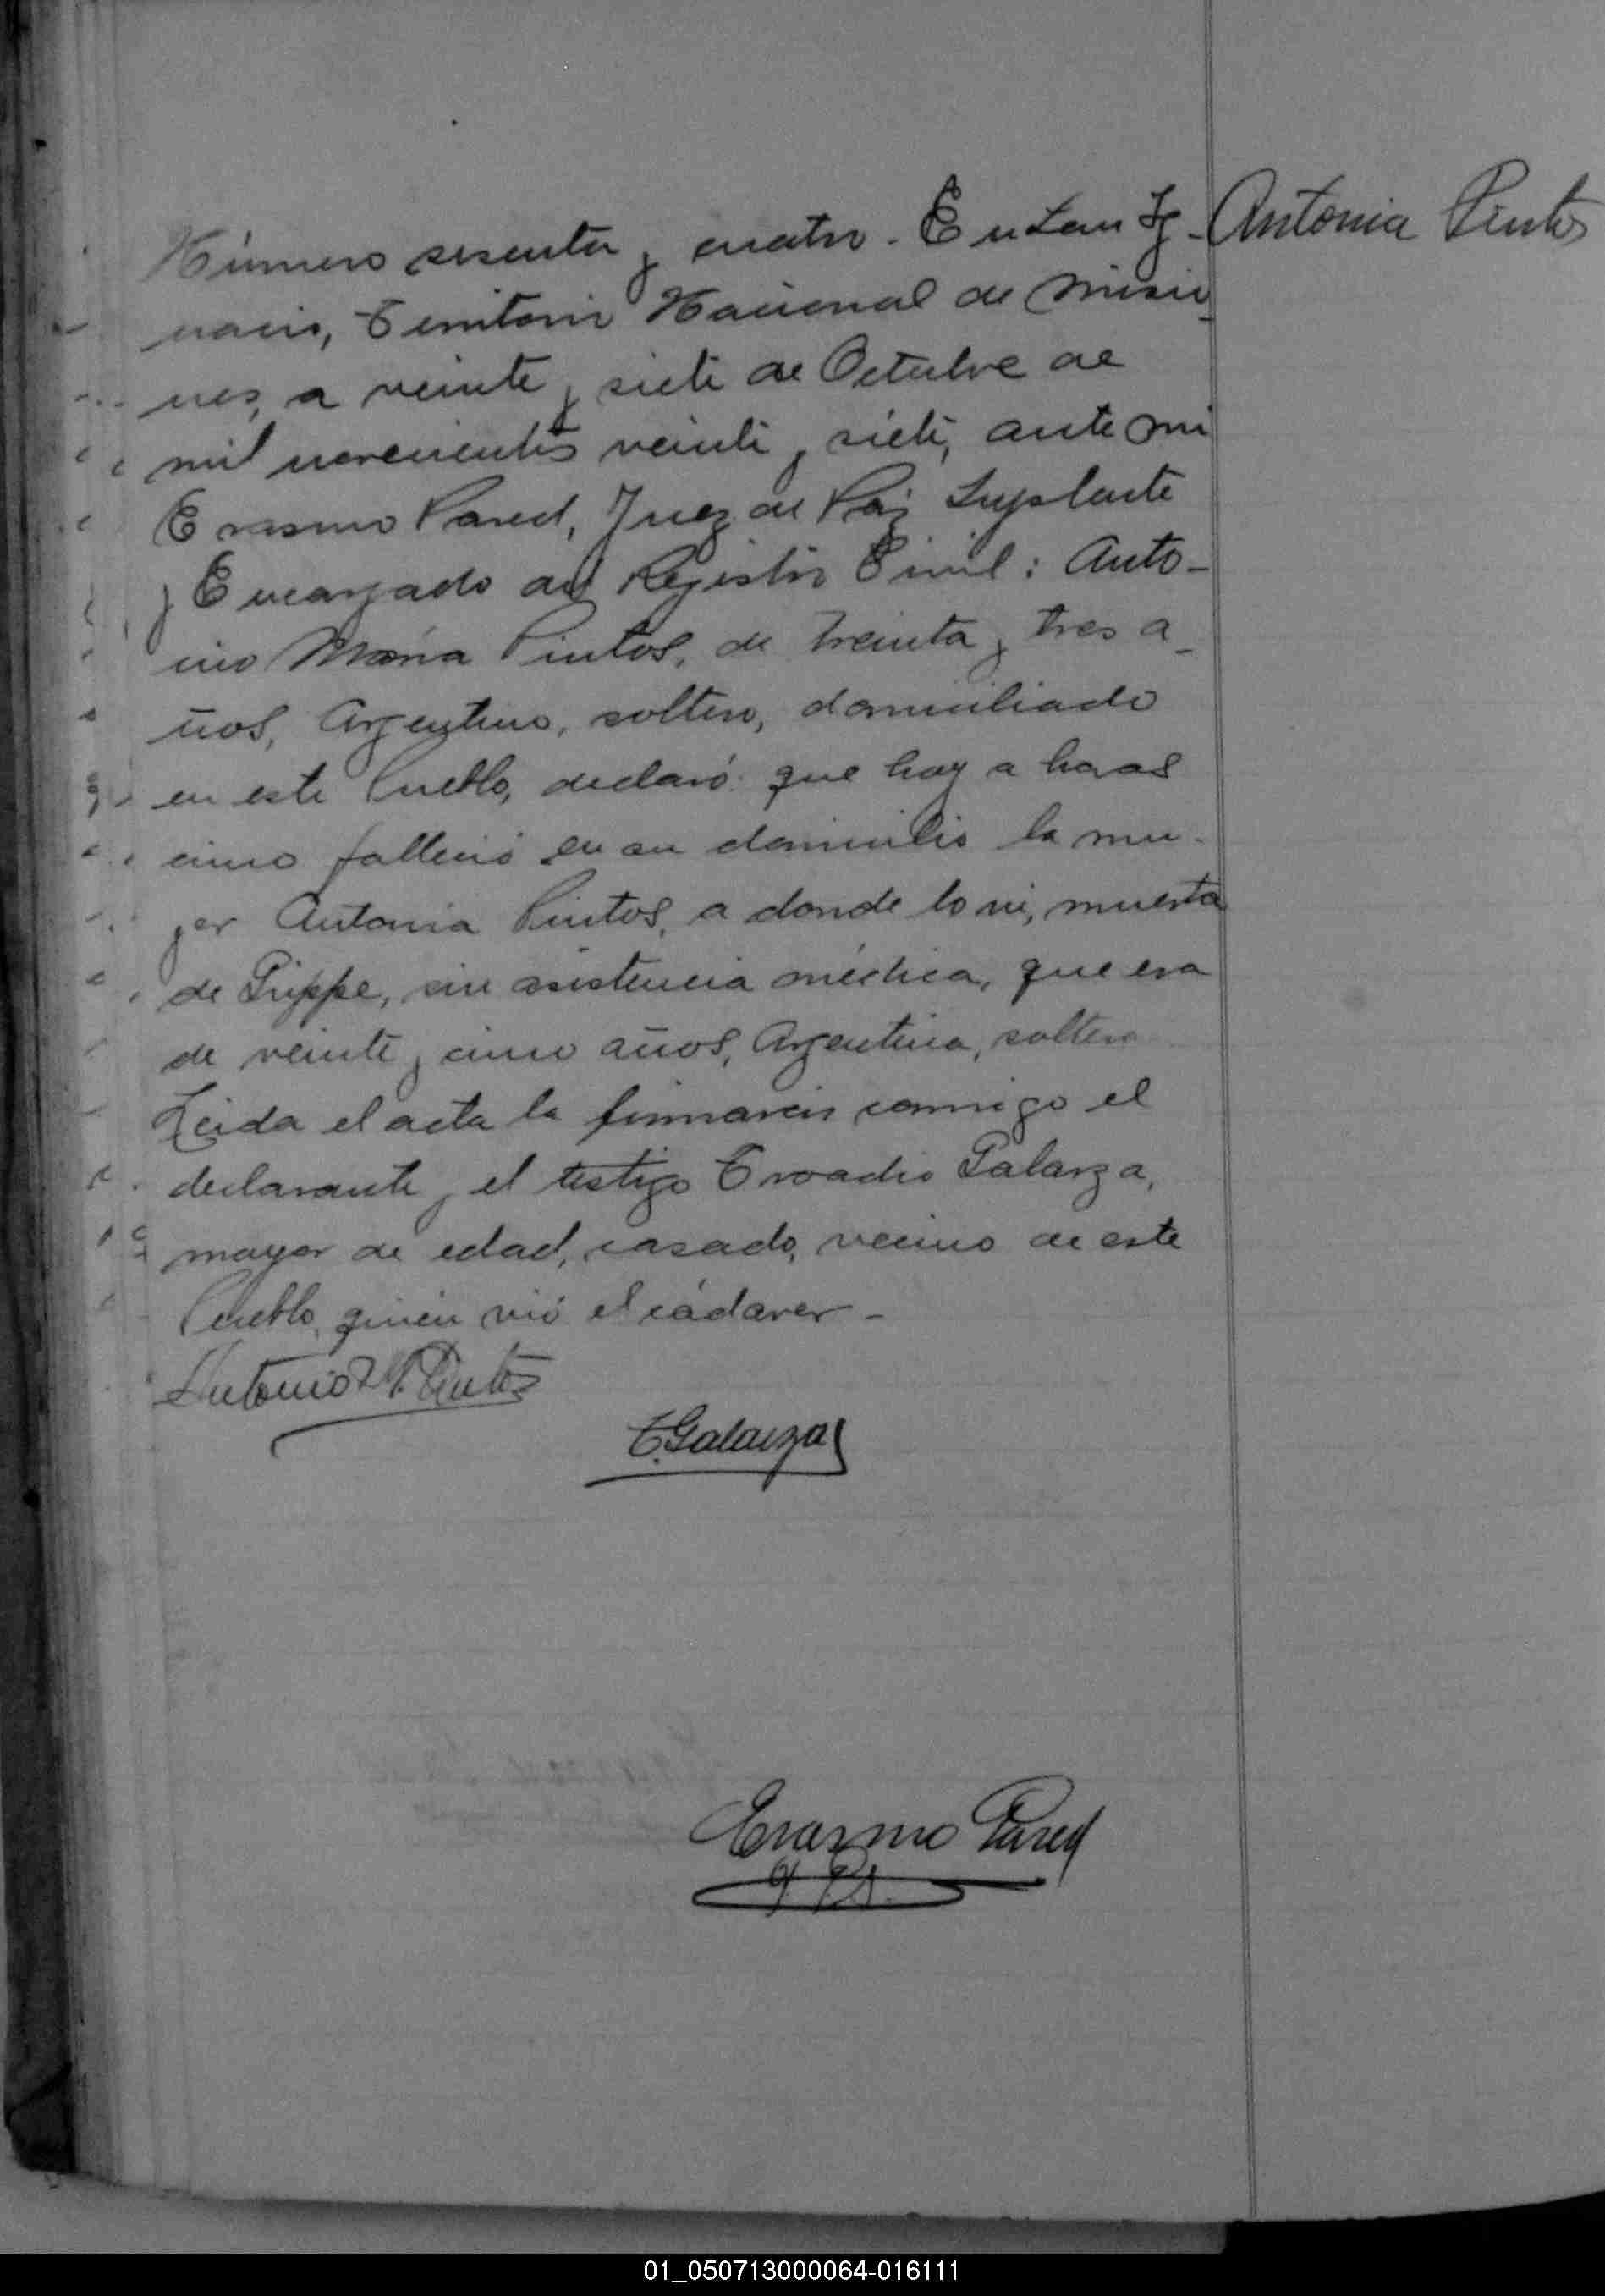 Número sesenta y cuatro. En San Ig- Antonia Pintos
nacio, Territorio Nacional de Misio-
nes, a veinte y siete de Octubre de
mil novecientos veinte y siete, ante mi
Erasmo Pared, Juez de Paz Suplente
y Encargado del Registro Civil: Anto-
nio María Pintos, de treinta y tres a-
ños, Argentino, soltero, domiciliado
en este Pueblo, declaró: que hoy a horas
cinco falleció en su domicilio la mu-
ger Antonia Pintos, a donde lo vi, muerta
de Grippe, sin asistencia médica, que era
de veinte y cinco años, Argentina, soltera
Leida el acta la firmaron conmigo el
declarante y el testigo Troadio Galarza,
mayor de edad, casado, vecino de este
Pueblo, quién vió el cádaver -
Antonio M. Pintos
T. Galarza
Erasmo Pared
01_050713000064-016111